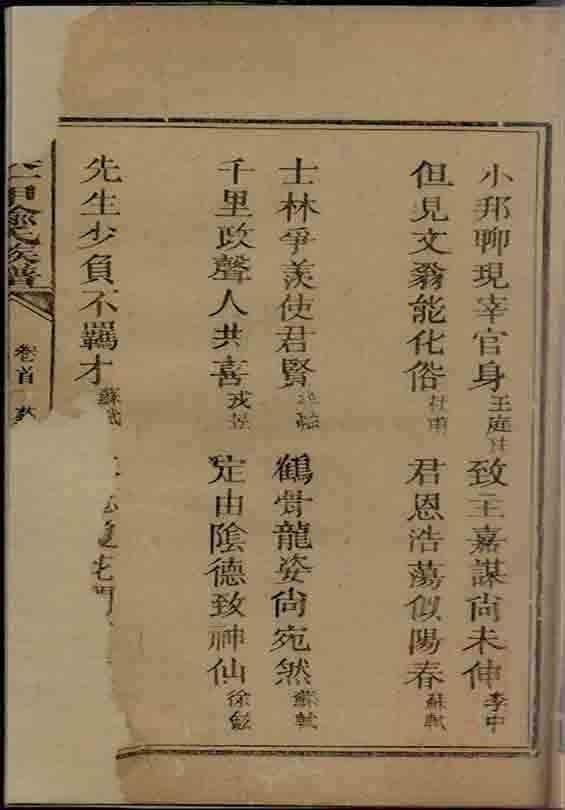 小邦聊現宰官身王庭珪 致主嘉謀尚未伸李中
但見文翁能化俗杜甫 君恩浩蕩似陽春蘇軾
士林爭羨使君賢 鶴骨龍姿尚宛然蘇軾
千里政聲人共喜戎昱 定由陰德致神仙徐鉉
先生少負不羈才蘇軾
族譜
卷首